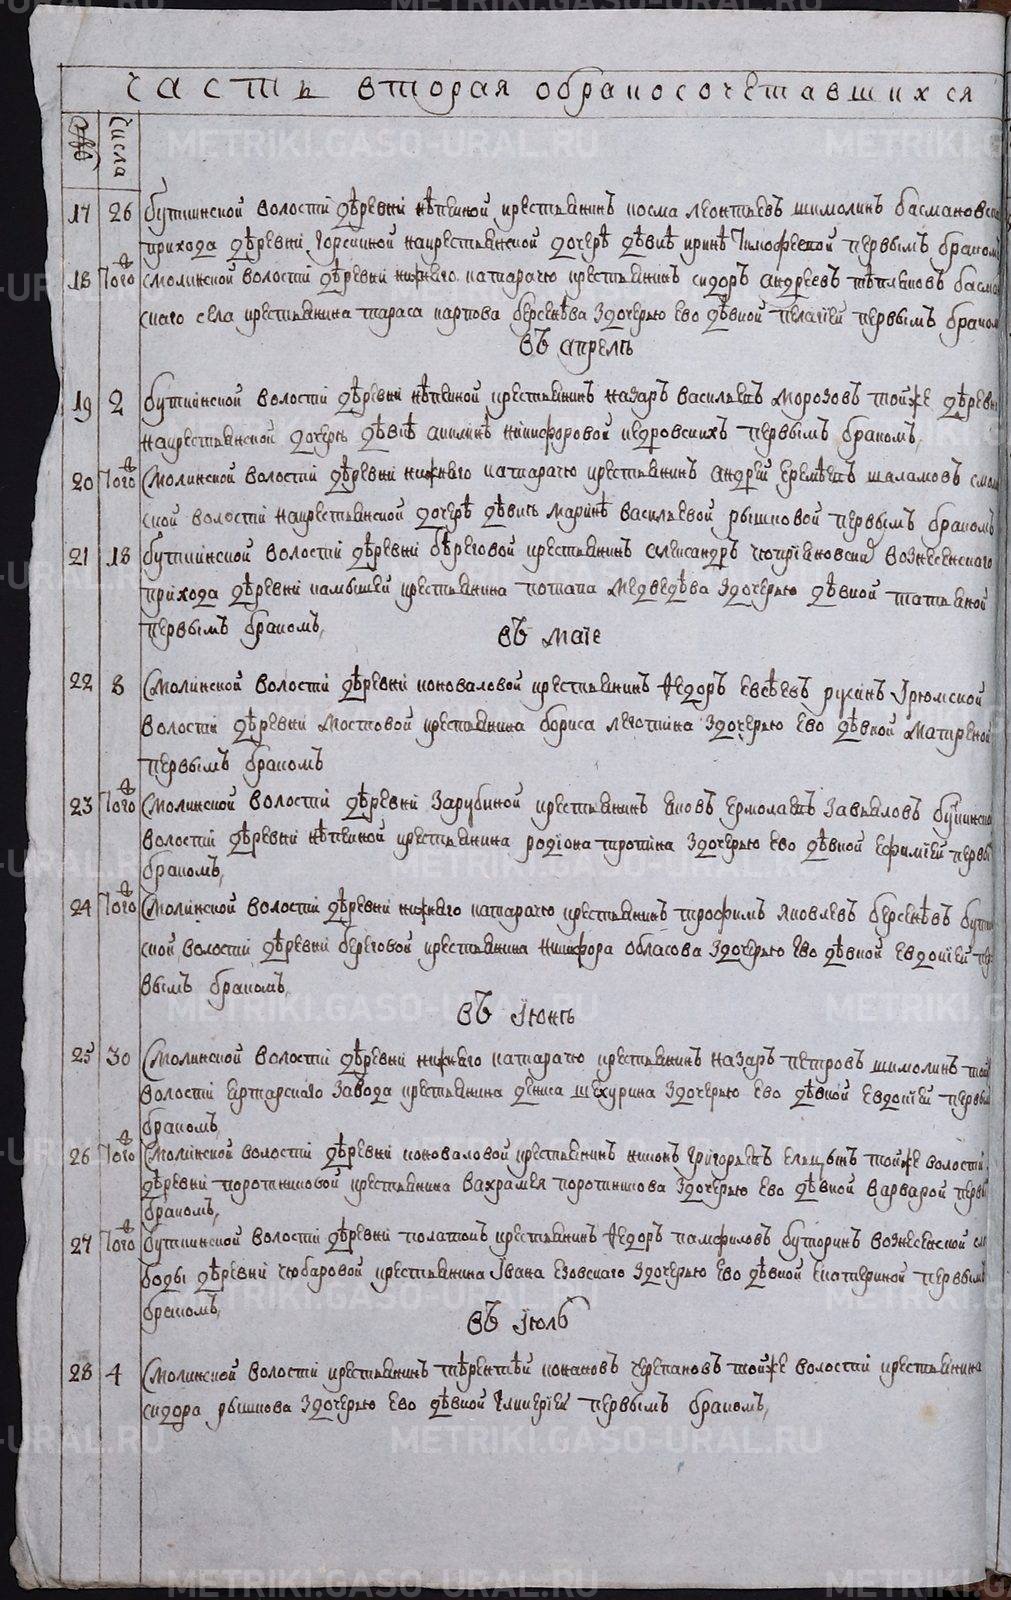 часть вторая обракосочетавшихся
числа
17 26 буткинской волости деревни непеиной крестьянинъ косма леонтьевъ шимолинъ басмановска
прихода деревни горскиной накрестьянской дочере девке ирине тимофеевой первымъ бракомъ
18 Того смолинской волости деревни нижнего катарачю крестьянинъ сидоръ андреевъ тепляковъ басма
скаго села крестьянина тараса карпова берсенева здочерью ево девкой пелагией первымъ бракомъ
въ апреле
19 2 буткинской волости деревни непеиной крестьянинъ назаръ васильевъ морозовъ тойже деревни
накрестьянской дочере девке акилине никифоровой первымъ бракомъ,
20 Того Смолинской волости деревни нижнего катарачю крестьянинъ андрей еремеевъ шаламовъ смол
ской волости накрестьянской дочере девке марине васильевой рышковой первымъ бракомъ
21 18 буткинской волости деревни береговой крестьянинъ александръ вознесенскаго
прихода деревни камышей крестьянина потапа медведева здочерью девкой татьяной
первымъ бракомъ,
въ маїе
22 8 Смолинской волости деревни коноваловой крестьянинъ Ѳедоръ евсеевъ русинъ Ірюмской
волости деревни мостовой крестьянина бориса леготина здочерью ево девкой матреной
первымъ бракомъ
23 Того Смолинской волости деревни зарубиной крестьянинъ яковъ ермолаевъ завьяловъ буткинско
волости деревни непеиной крестьянина родїона тропина здочерью ево девкой ефимїей первы
бракомъ,
24 Того Смолинской волости деревни нижнего катарачю крестьянинъ трофимъ яковлевъ берсеневъ бутки
ской волости деревни береговой крестьянина никифора обласова здочерью ево девкой евдокїей пер
вымъ бракомъ,
въ Їюне
25 30 Смолинской волости деревни нижнего катарачю крестьянинъ назаръ петровъ шимолинъ той
волости ертарскаго завода крестьянина дениса шекурина здочерью ево девкой евдокїей первым
бракомъ,
26 Того Смолинской волости деревни коноваловой крестьянинъ никонъ григорьевъ елцынъ тойже волости
деревни коротнишовой крестьянина вахрамея коротнишова здочерью ево девкой варварой первы
бракомъ,
27 Того буткинской волости деревни полатой крестьянинъ Ѳедоръ памфиловъ буторинъ вознесенской сло
боды деревни чюбаровой крестьянина Івана езовскаго здочерью ево девкой екатериной первымъ
бракомъ,
въ Їюле
28 4 Смолинской волости крестьянинъ терентей конановъ черепановъ тойже волости крестьянина
сидора рышкова здочерью ево девкой гликерїей первымъ бракомъ,